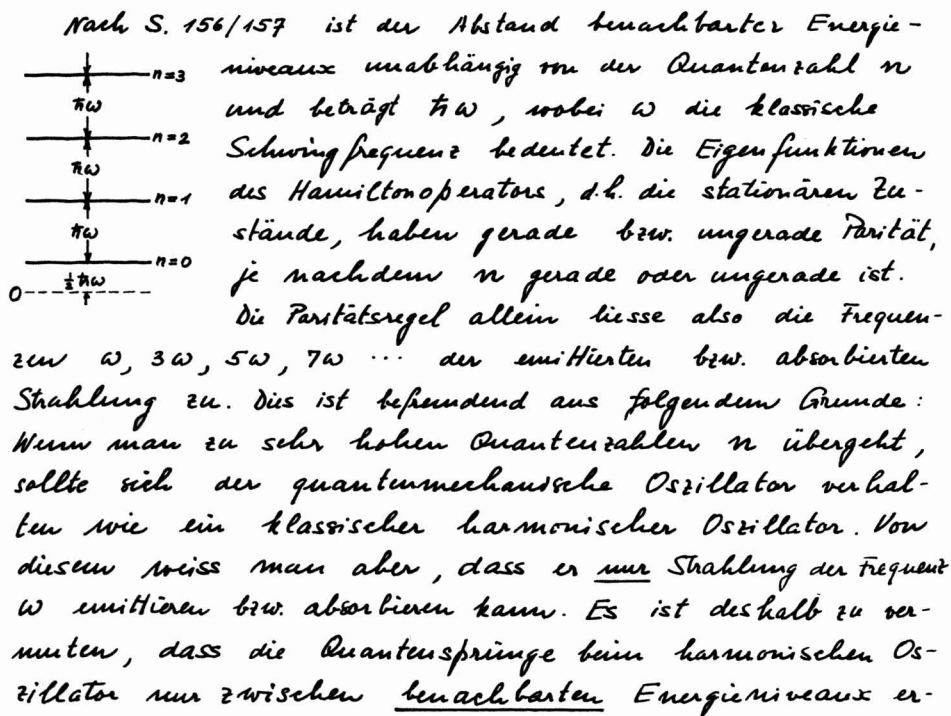 Nach S. 156/157 ist der Abstand benachbarter Energie-
niveaux unabhängig von der Quantenzahl n
und beträgt ħω, wobei ω die klassische
Schwingfrequenz bedeutet. Die Eigenfunktionen
des Hamiltonoperators, d.h. die stationären Zu-
stände, haben gerade bzw. ungerade Parität,
je nachdem n gerade oder ungerade ist.
Die Paritätsregel allein liesse also die Frequen-
zen ω, 3ω, 5ω, 7ω ... der emittierten bzw. absorbierten
Strahlung zu. Dies ist befremdend aus folgendem Grunde:
Wenn man zu sehr hohen Quantenzahlen n übergeht,
sollte sich der quantenmechanische Oszillator verhal-
ten wie ein klassischer harmonischer Oszillator. Von
diesem weiss man aber, dass er nur Strahlung der Frequenz
ω emittieren bzw. absorbieren kann. Es ist deshalb zu ver-
muten, dass die Quantensprünge beim harmonischen Os-
zillator nur zwischen benachbarten Energieniveaux er-
n=3
ħω
n=2
ħω
n=1
ħω
n=0
½ħω
0